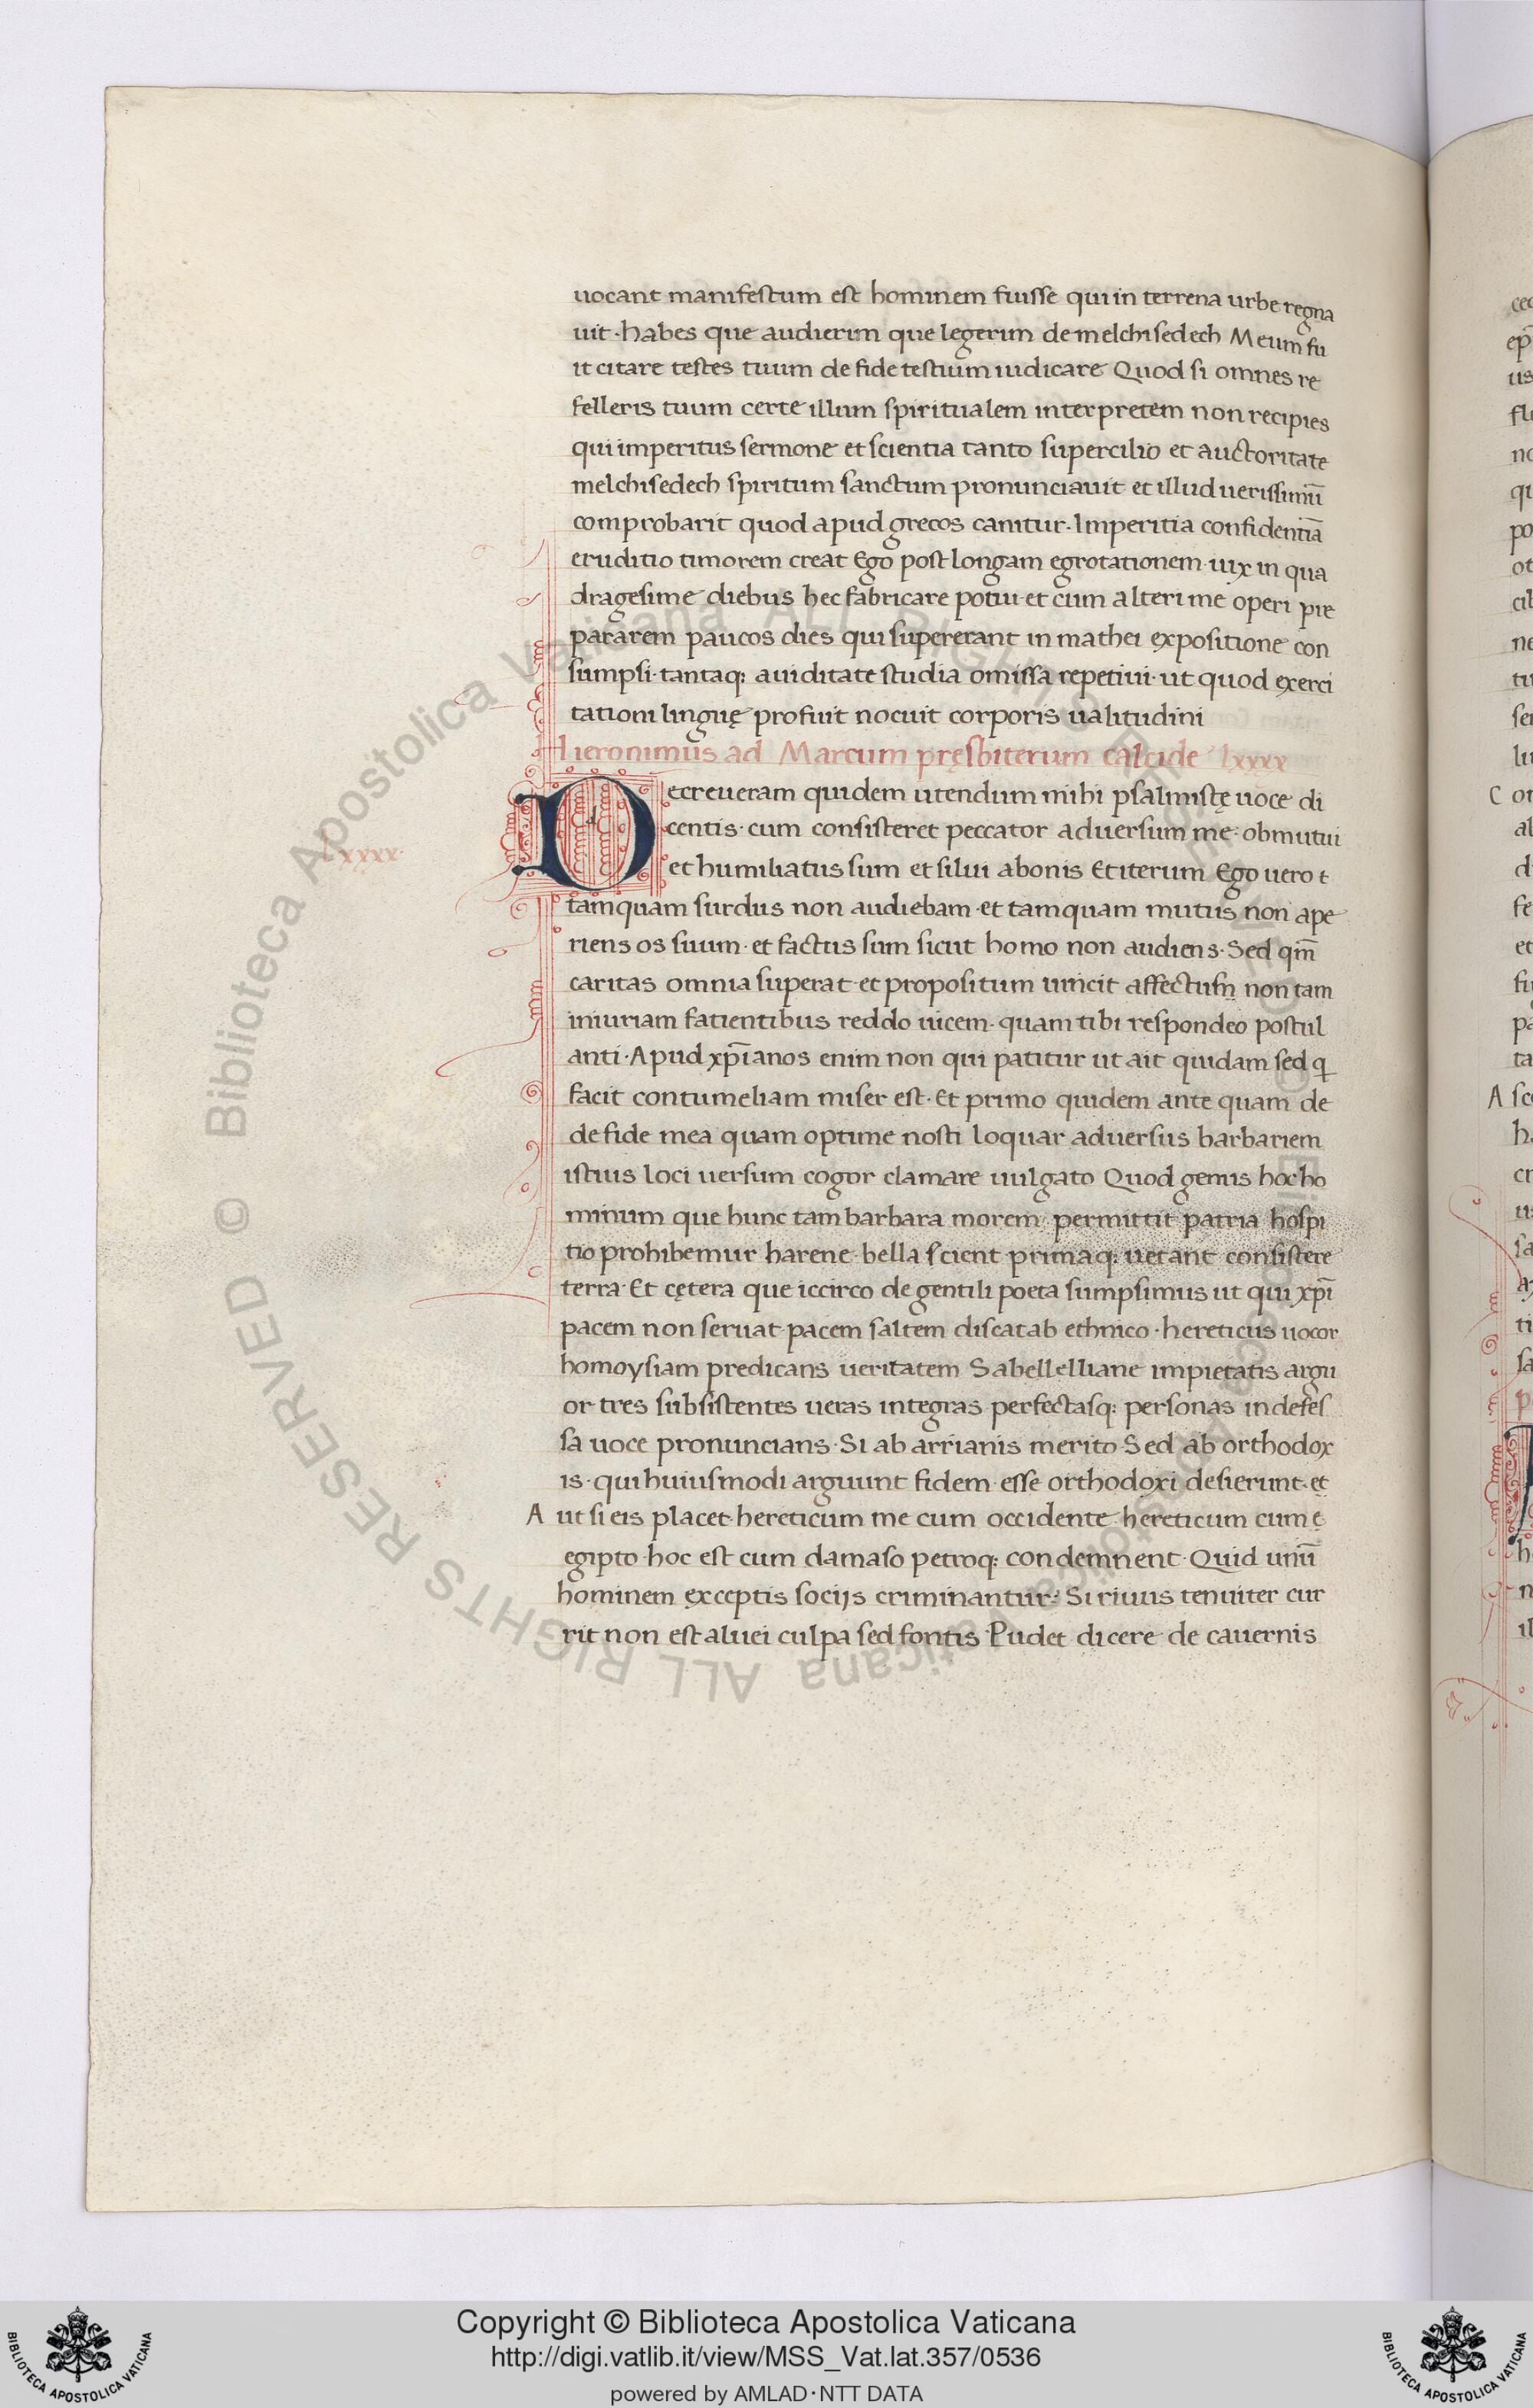 uocant manifestum est hominem fuisse qui in terrena urbe regna
uit · habes que audierim que legerim de melchisedech Meum fu
it citare testes tuum de fide testium iudicare Quod si omnes re
felleris tuum certe illum spiritualem interpretem non recipies
qui imperitus sermone et scientia tanto supercilio et auctoritate
melchisedech spiritum sanctum pronunciauit et illud uerissimū
comprobarit quod apud grecos canitur · Imperitia confidentiā
eruditio timorem creat Ego post longam egrotationem uix in qua
dragesime diebus hec fabricare potui · et cum alteri me operi pre
pararem paucos dies qui supererant in mathei expositione con
sumpsi · tantaq: auiditate studia omissa repetiui · ut quod exerci
tationi linguę profuit nocuit corporis ualitudini
Hieronimus ad Marcum pręsbiterum calcide lxxxx
Decreueram quidem utendum mihi psalmistę uoce di
centis · cum consisteret peccator aduersum me · obmutui
lxxxx ·
et humiliatus sum et silui abonis Et iterum Ego uero t
tamquam surdus non audiebam · et tamquam mutus non ape
riens os suum · et factus sum sicut homo non audiens · Sed qm̄
caritas omnia superat · et propositum uincit affectum non tam
iniuriam fatientibus reddo uicem · quam tibi respondeo postul
anti · Apud xp̄ianos enim non qui patitur ut ait quidam sed q
facit contumeliam miser est · Et primo quidem ante quam de
de fide mea quam optime nosti loquar aduersus barbariem
istius loci uersum cogor clamare uulgato Quod genus hoc ho
minum que hunc tam barbara morem permittit patria hospi
tio prohibemur harene · bella scient primaq: uetant consistere
terra · Et cętera que iccirco de gentili poeta sumpsimus ut qui xp̄i
pacem non seruat pacem saltem discat ab ethnico · hereticus uocor
homoysiam predicans ueritatem Sabellelliane impietatis argu
or tres subsistentes ueras integras perfectasq: personas indefes
sa uoce pronuncians · Si ab arrianis merito Sed ab orthodox
is · qui huiusmodi arguunt fidem esse orthodoxi desierunt · et
A ut si eis placet hereticum me cum occidente hereticum cum ę
egipto hoc est cum damaso petroq: condemnent · Quid unū
hominem exceptis socijs criminantur · Si riuus tenuiter cur
rit non est aluei culpa sed fontis Pudet dicere de cauernis
© Biblioteca Apostolica Vaticana ALL RIGHTS RESERVED
Copyright © Biblioteca Apostolica Vaticana
http://digi.vatlib.it/view/MSS_Vat.lat.357/0536
powered by AMLAD·NTT DATA
BIBLIOTECA APOSTOLICA VATICANA
BIBLIOTECA APOSTOLICA VATICANA